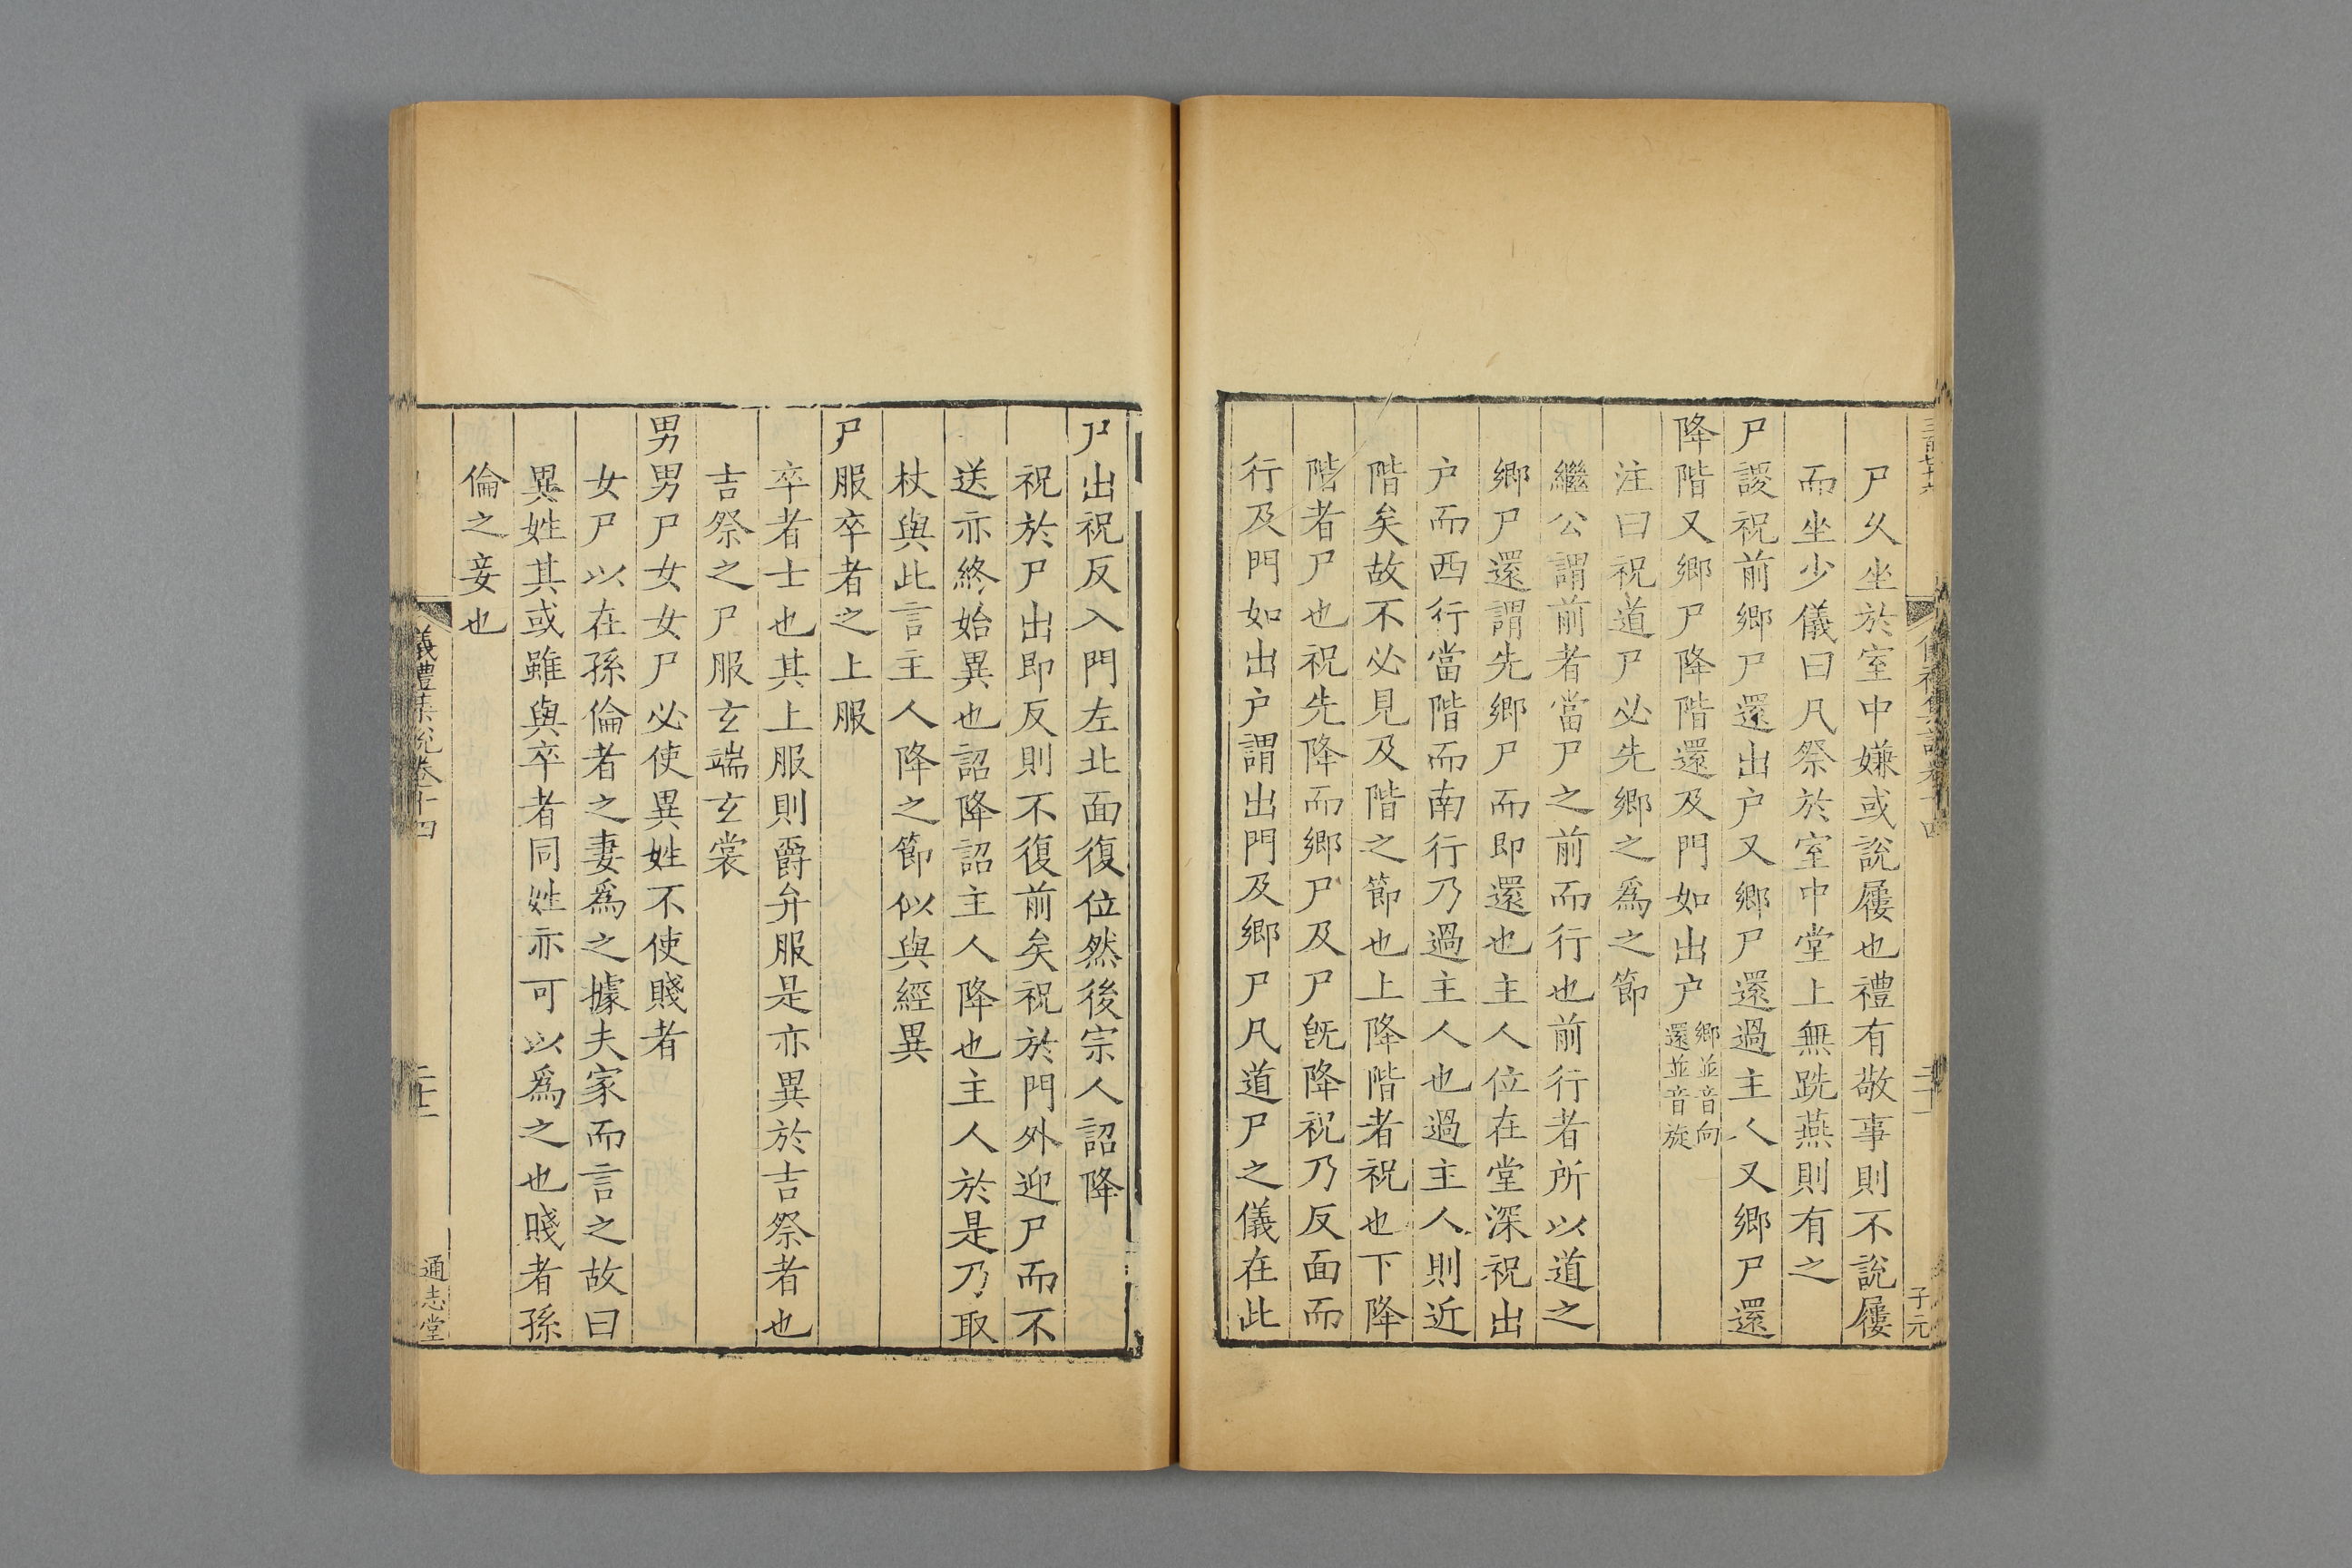 三百七十六
子元
尸久坐於室中嫌或說屨也禮有敬事則不說屨
而坐少儀曰凡祭於室中堂上無跣燕則有之
尸謖祝前鄉尸還出户又鄉尸還過主人又鄉尸還
降階又鄉尸降階還及門如出户鄉並音向還並音旋
注曰祝道尸必先鄉之爲之節
繼公謂前者當尸之前而行也前行者所以道之
鄉尸還謂先鄉尸而即還也主人位在堂深祝出
户而西行當階而南行乃過主人也過主人則近
階矣故不必見及階之節也上降階者祝也下降
階者尸也祝先降而鄉尸及尸旣降祝乃反面而
行及門如出户謂出門及鄉尸凡道尸之儀在此
尸出祝反入門左北面復位然後宗人詔降
祝於尸出即反則不復前矣祝於門外迎尸而不
送亦終始異也詔降詔主人降也主人於是乃取
杖與此言主人降之節似與經異
尸服卒者之上服
卒者士也其上服則爵弁服是亦異於吉祭者也
吉祭之尸服玄端玄裳
男男尸女女尸必使異姓不使賤者
女尸以在孫倫者之妻爲之據夫家而言之故曰
異姓其或雖與卒者同姓亦可以爲之也賤者孫
倫之妾也
儀禮集說卷十四
通志堂